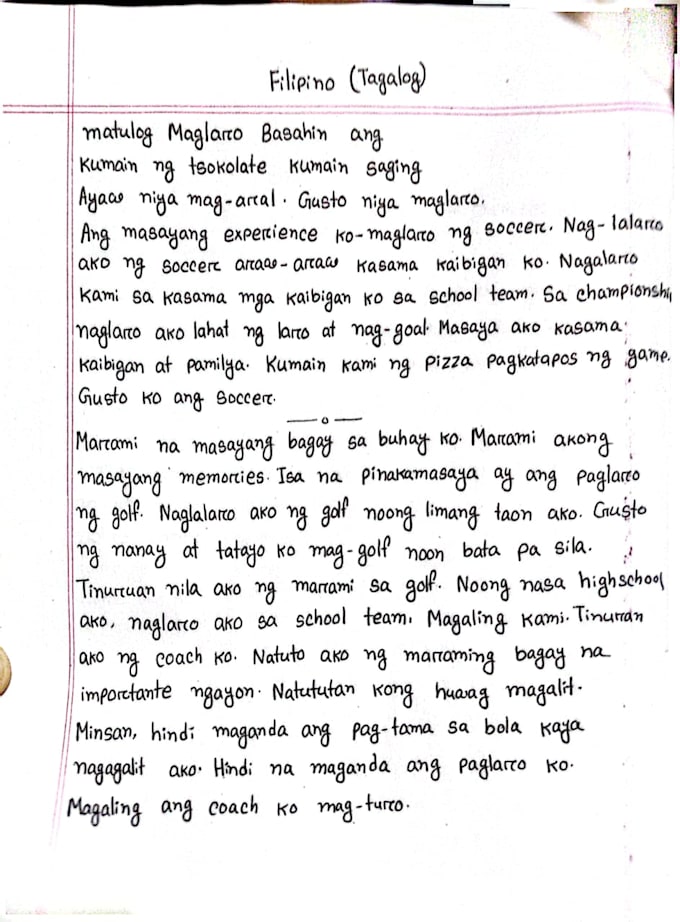 Filipino (Tagalog)
matulog Maglaro Basahin ang
Kumain ng tsokolate kumain saging
Ayaw niya mag-aral. Gusto niya maglaro.
Ang masayang experience ko-maglaro ng soccer. Nag-lalaro
ako ng soccer araw-araw kasama kaibigan ko. Nagalaro
kami sa kasama mga kaibigan ko sa school team. Sa championship
naglaro ako lahat ng laro at nag-goal. Masaya ako kasama
kaibigan at pamilya. Kumain kami ng pizza pagkatapos ng game.
Gusto ko ang soccer.
Marami na masayang bagay sa buhay ko. Marami akong
masayang memories. Isa na pinakamasaya ay ang paglaro
ng golf. Naglalaro ako ng golf noong limang taon ako. Gusto
ng nanay at tatayo ko mag-golf noon bata pa sila.
Tinuruan nila ako ng marami sa golf. Noong nasa highschool
ako, naglaro ako sa school team. Magaling kami. Tinurran
ako ng coach ko. Natuto ako ng maraming bagay na
importante ngayon. Natututan kong huwag magalit.
Minsan, hindi maganda ang pag-tama sa bola kaya
nagagalit ako. Hindi na maganda ang paglaro ko.
Magaling ang coach ko mag-turo.